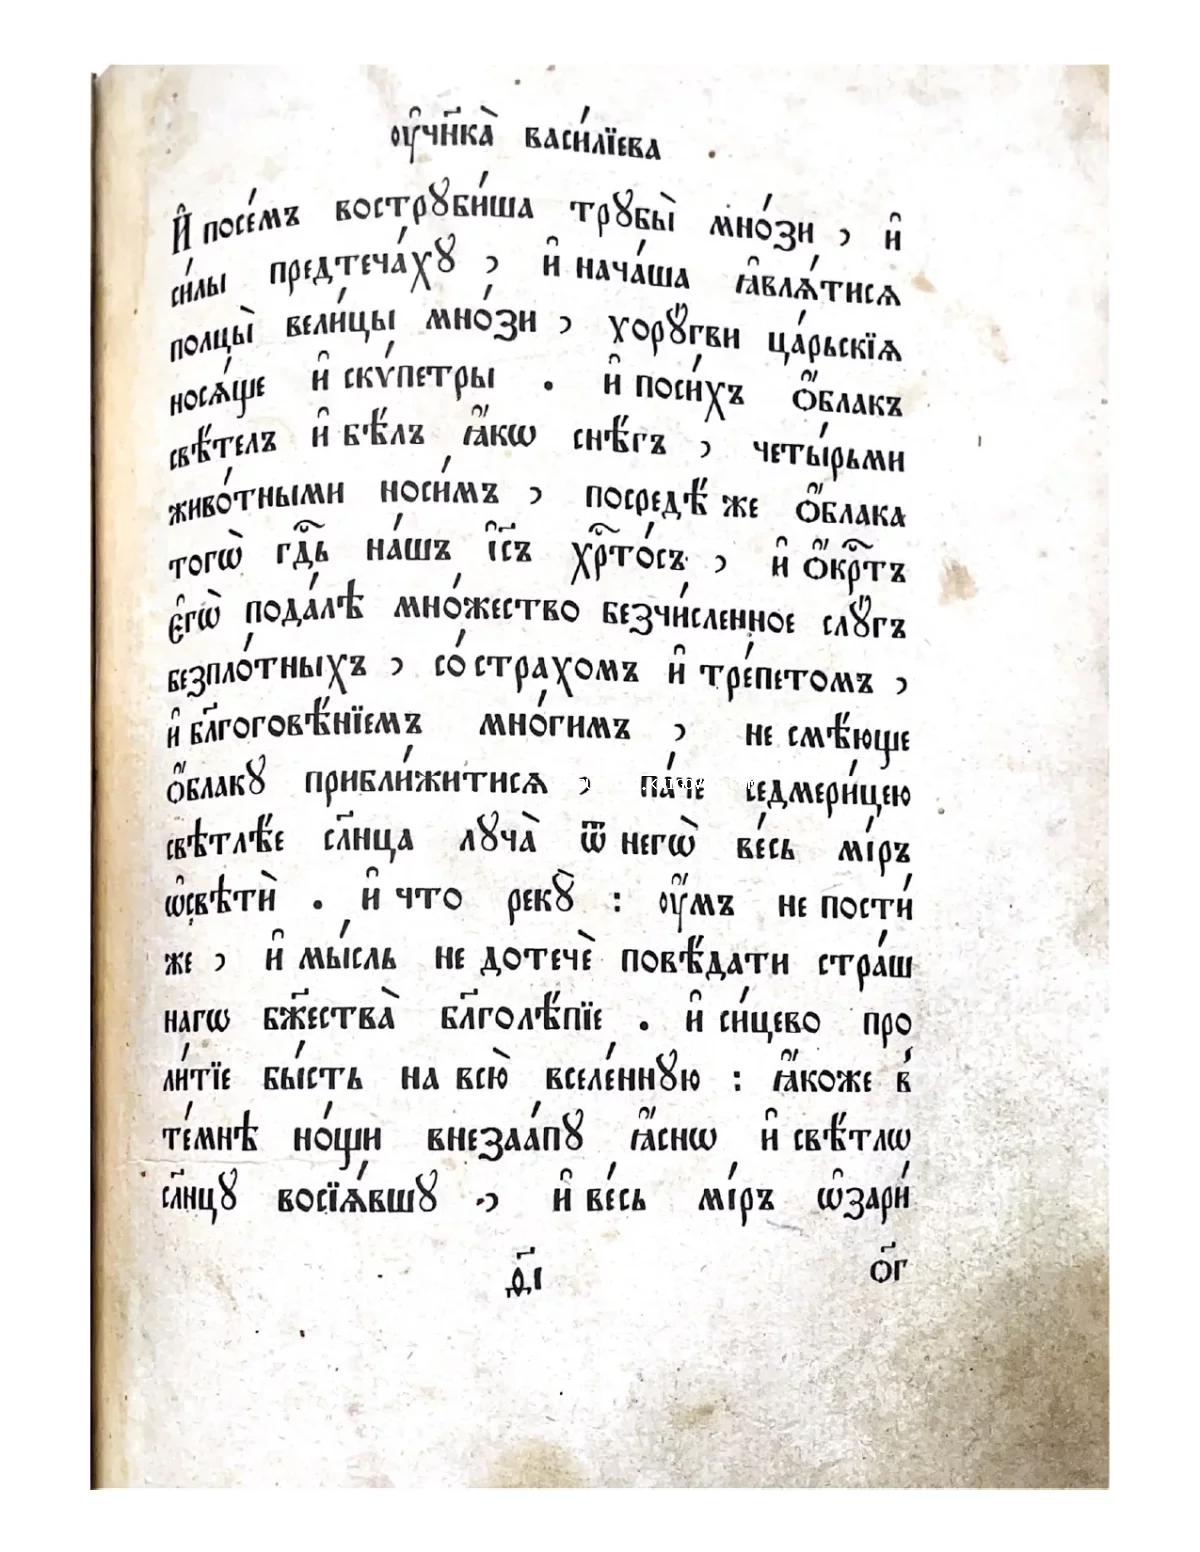 ᲂу҆чн҃ка̀ васи́лїева
И҆ посе́мъ вострꙋби́ша трꙋбы̀ мно́зи , и҆
си́лы предтеча́хꙋ , и҆ нача́ша ꙗ҆влѧ́тисѧ
полцы̀ вели́цы мно́зи , хорꙋ̑гви ца́рьскїѧ
носѧ́ще и҆ скѵ́петры . и҆ поси́хъ ѻ҆́блакъ
свѣ́телъ и҆ бѣ́лъ ꙗ҆́кѡ снѣ́гъ , четы́рьми
живо́тными носи́мъ , посредѣ́ же ѻ҆́блака
тогѡ̀ гдⷭ҇ь на́шъ і҆с҃ъ хрⷭ҇то́съ , и҆ ѻ҆́крⷭ҇тъ
є҆гѡ̀ пода́лѣ мно́жество безчи́сленное слꙋ̑гъ
безпло́тныхъ , со́ страхомъ и҆ тре́петомъ ,
и҆ бл҃гоговѣ́нїемъ мно́гимъ , не смѣ́юще
ѻ҆́блакꙋ прибли́житисѧ , па́че седмери́цею
свѣтлѣ́е сл҃нца лꙋча̀ ѿ негѡ̀ ве́сь мі́ръ
ѡ҆свѣтѝ . и҆ что рекꙋ̀ : ᲂу҆́мъ не пости́
же , и҆ мы́сль не дотечѐ повѣ́дати стра́ш
нагѡ бж҃ества̀ бл҃голѣ́пїе . и҆ си́цево про
ли́тїе бы́сть на всю̀ вселе́ннꙋю : ꙗ҆́коже в́
те́мнѣ но́щи внезаа́пꙋ ꙗ҆́снѡ и҆ свѣ́тлѡ
сл҃нцꙋ восїѧ́вшꙋ , и҆ ве́сь мі́ръ ѡ҆зари́
д҃і ѻ҃г